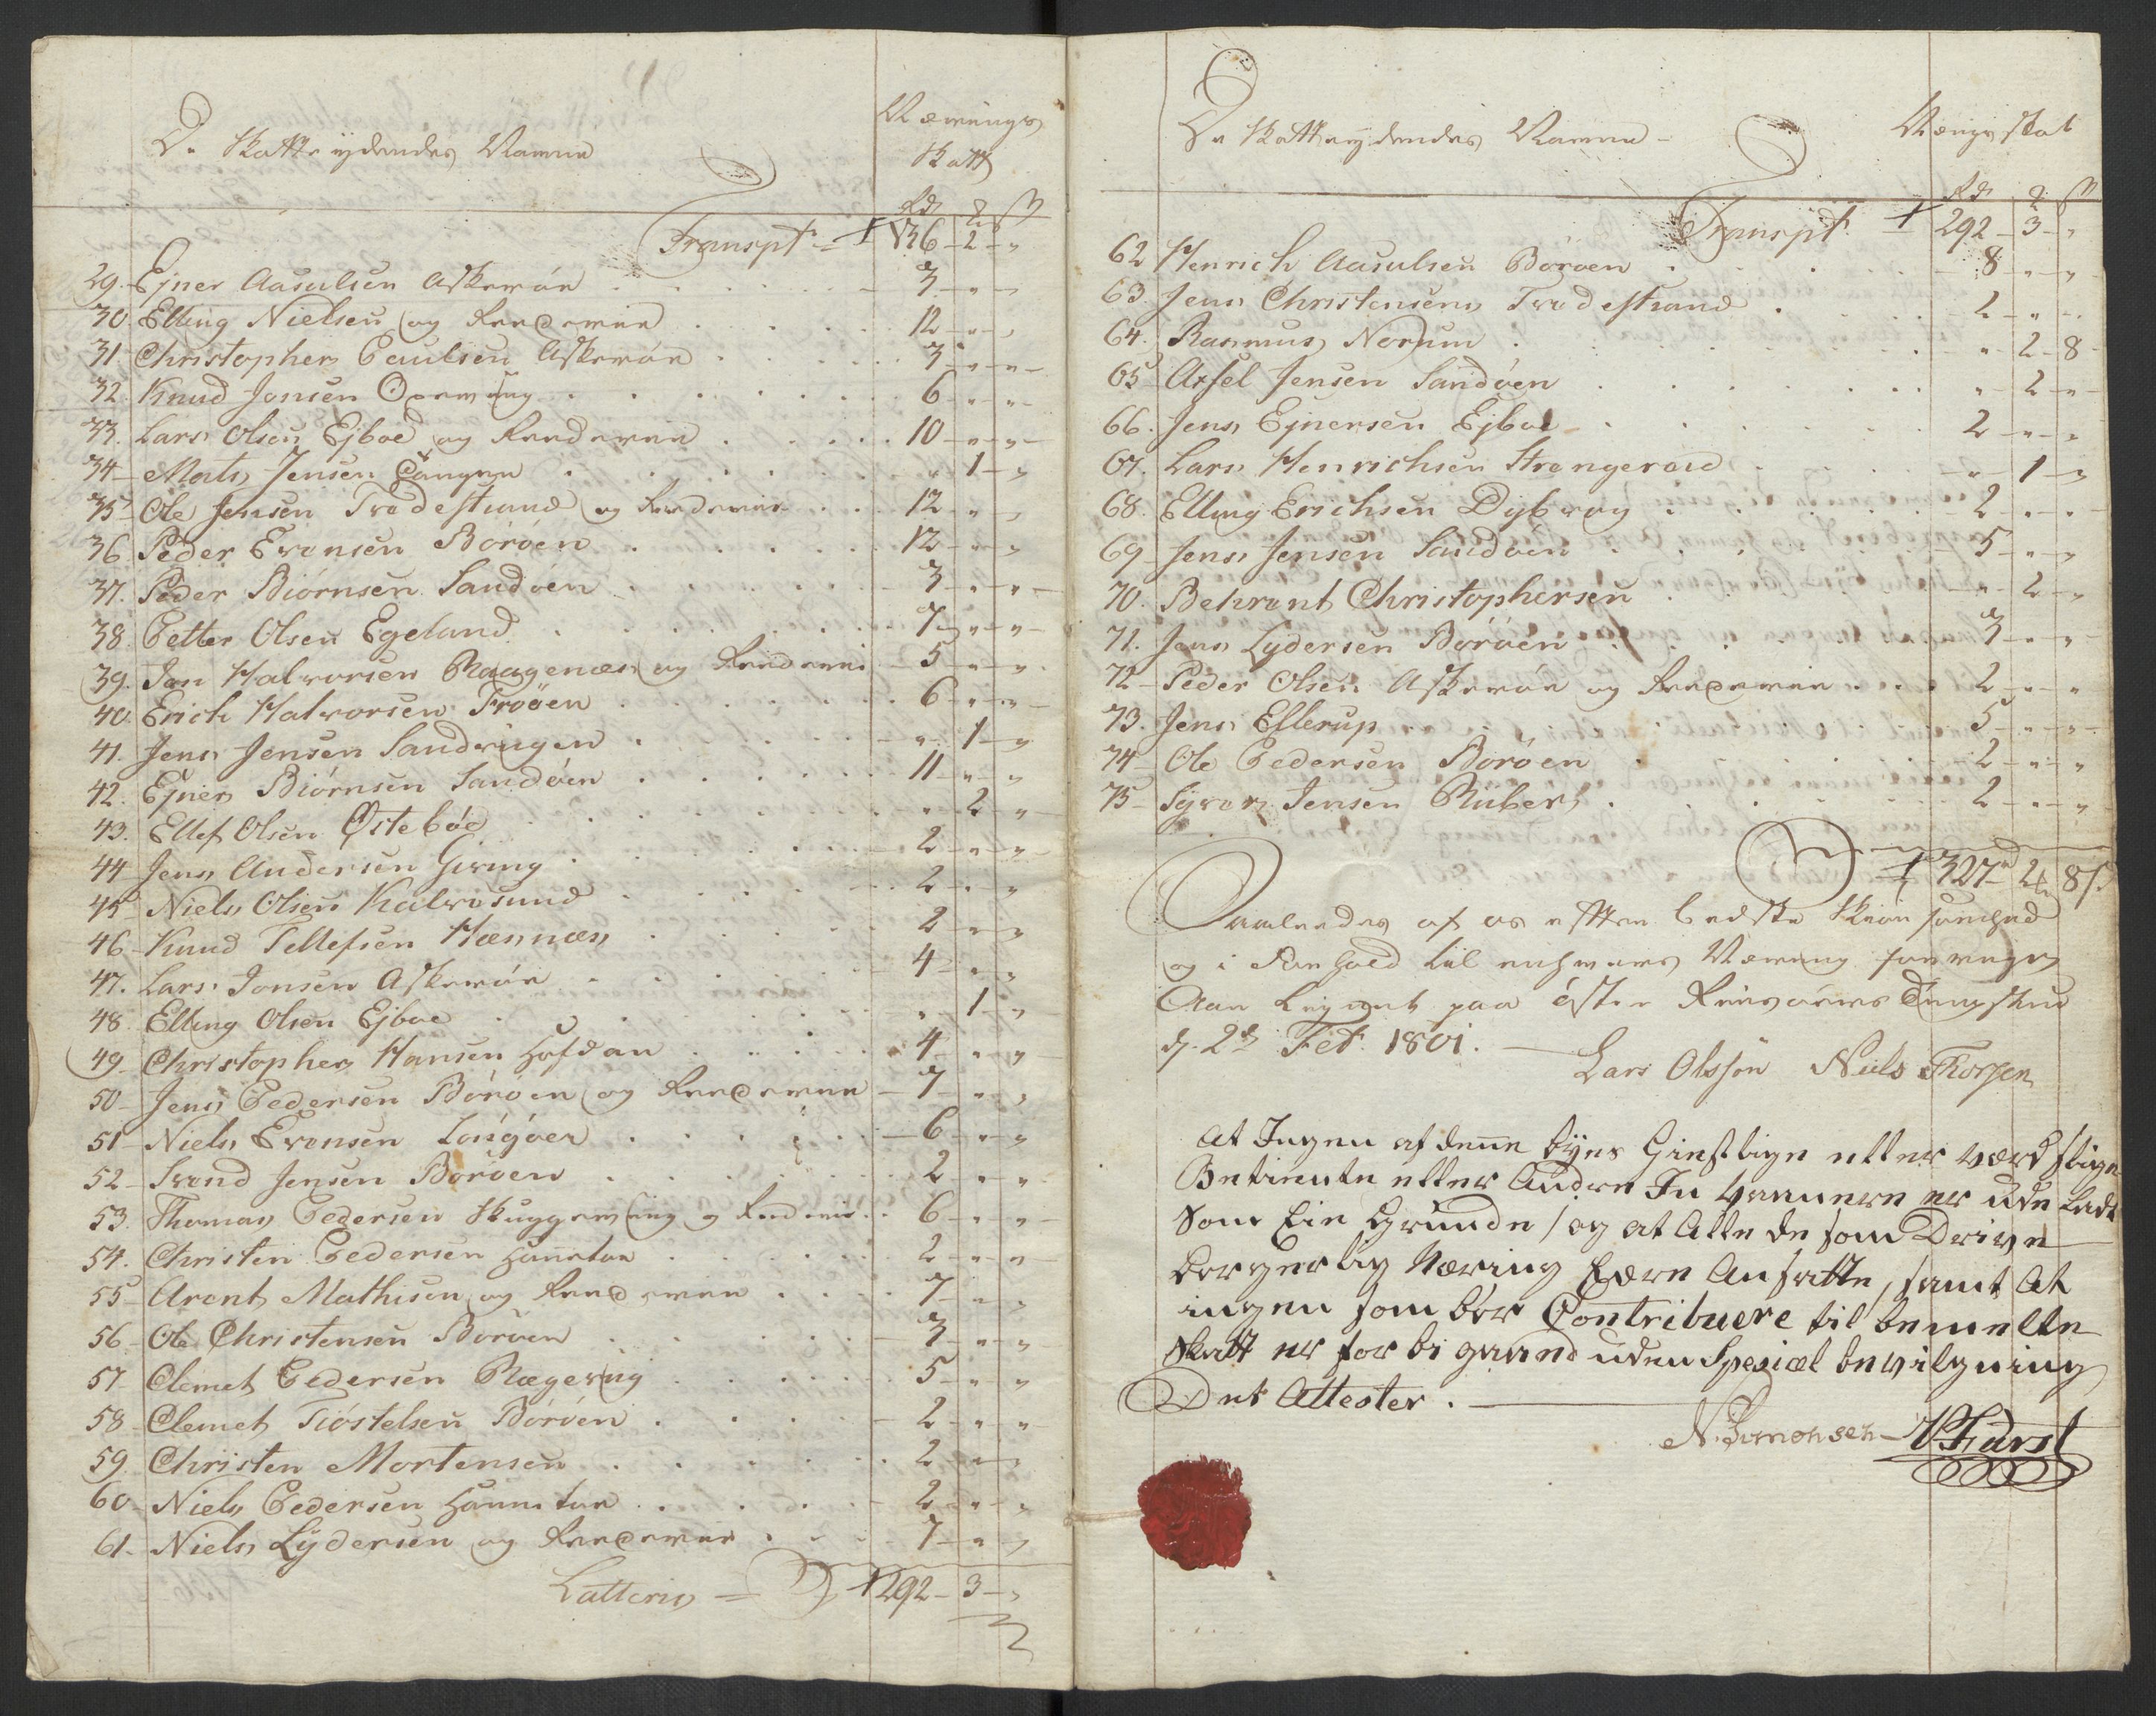 De Skatteydendes Navne
Nærings
Skatt
Rd ß
Transpt = 136 - 2 - "
29. Ejner Aasulsen Askerøe 3 - " - "
30. Elling Nielsen og Rederie 12 - " - "
31 Christopher Paulsen Askerøe 3 - " - "
32. Knud Jonsen 6 - " - "
33. Lars Olsen Ejboe og Rederie 10 - " - "
34 - Mats Jensen Tangen " 1 - "
35 - Ole Jensen Tvedestrand og Rederie 12 - " - "
36. Peder Evensen Borøen 12 - " - "
37. Peder Biørnsen Sandøen 3 - " - "
38. Petter Olsen Egeland 7 - " - "
39. Jon Halvorsen Raagenæs og Rederie 5 - " - "
40. Erich Halvorsen Frøøen 6 - " - "
41. Jens Jensen Sandvigen " 1 - "
42. Ejner Biørnsen Sandøen 11 - " - "
43. Ellef Olsen Østebøe " 2 - "
44 - Jens Andersen Giving 2 - " - "
45 - Niels Olsen Kalvøsund 2 - " - "
46 - Knud Tellefsen Hæsnæs 2 - " - "
47. Lars Jonsen Askerøe 4 - " - "
48. Elling Olsen Ejboe " 1 - "
49 - Christopher Hansen 4 - " - "
50 - Jens Pedersen Borøen og Rederie - 7 - " - "
51 - Niels Evensen 6 - " - "
52 - Svend Jensen Borøen 2 - " - "
53. Thomas Pedersen og Rederie 6 - " - "
54. Christen Pedersen 2 - " - "
55 - Arent Mathisen og Rederie 7 - " - "
56 - Ole Christensen Borøen 3 - " - "
57 - Clemet Pedersen Rægevig 5 - " - "
58 - Clemet Tiøstelsen Borøen 2 - " - "
59. Christen Mortensen 2 - " - "
60 - Niels Pedersen 2 - " - "
61 - Niels Lydersen og Rederie 7 - " - "
Latteris = 292 - 3 - "
De Skatteydendes Navne -
Nærings skat
Rd ß
Transpt 292 - 3 - "
62 Henrich Aasulsen Borøen 8 - " - "
63. Jens Christensen Tvedestrand 2 - " - "
64. Rasmus Norum " 2 - 8
65 Axsel Jensen Sandøen " 2 - "
66. Jens Ejnersen Ejboe 2 - " - "
67. Lars Henrichsen Strengereid " 1 - "
68. Elling Erichsen Dybvog 2 - " - "
69 - Jens Jensen Sandøen 5 - " - "
70. Behrent Christophersen " 2 - "
71. Jens Lydersen Borøen 3 - " - "
72 - Peder Olsen Askerøe og Rederie 2 - " - "
73. Jens Ellerup 5 - " - "
74 - Ole Pedersen Borøen 2 - " - "
75 - Syver Jensen Ribert 2 - " - "
327 - 2 8ß
Saaledes af os efter bedste Skiønsomhed
og i Forhold til enhvers Næring forrige
Aar Lignet paa Øster Riisøers Tingstue
d. 2de Feb. 1801.
Lars Olssøn Niels Thorsen
At Ingen af denne byes Giestlige eller værdslige
Betiente eller Andre Indvaanere er ude Ladt
som Ein Grunde / og at Alle de som Drive
borgerlig Næring Ere Ansatte, samt At
ingen som bør Contribuere til bemelte
Skatt er forbigaaed uden Spesial bevilgning
Det Attester.
N. Simonsen N Hurst